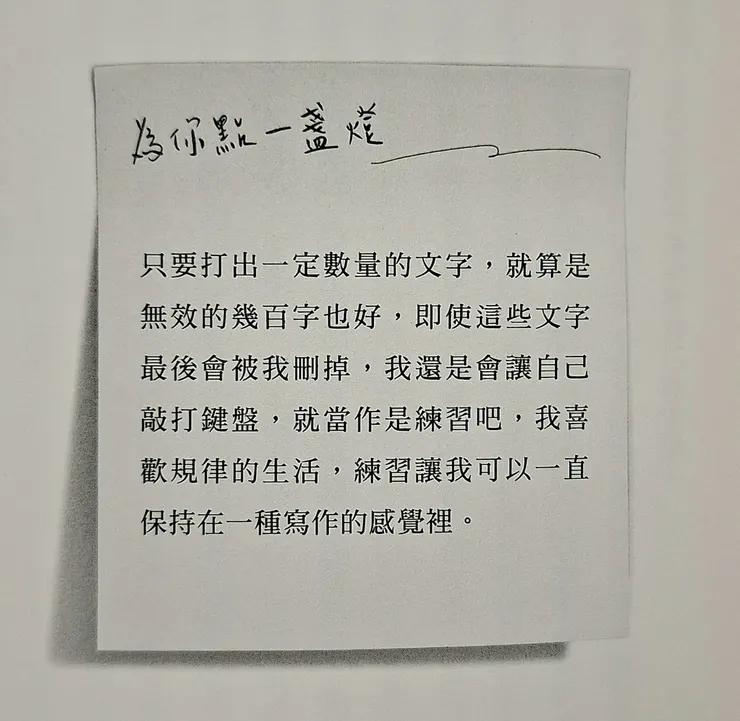 為你點一盞燈
只要打出一定數量的文字，就算是
無效的幾百字也好，即使這些文字
最後會被我刪掉，我還是會讓自己
敲打鍵盤，就當作是練習吧，我喜
歡規律的生活，練習讓我可以一直
保持在一種寫作的感覺裡。